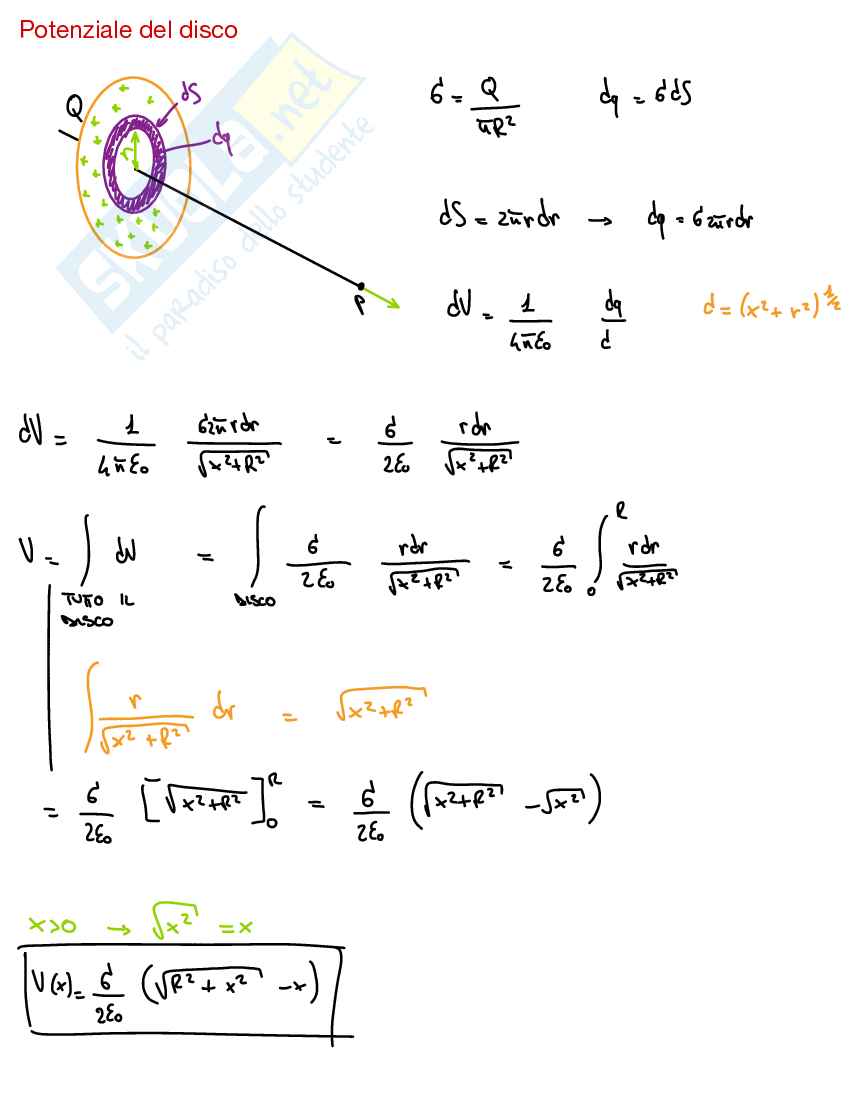 Potenziale del disco
Q
dS
dq
r
P
σ = Q / πR²    dq = σdS
dS = 2πrdr → dq = σ2πrdr
dV = 1 / 4πε₀  dq / d    d = (x² + r²)^1/2
dV = 1 / 4πε₀  σ2πrdr / √x²+R² = σ / 2ε₀  rdr / √x²+R²
V = ∫ TUTTO IL DISCO dV = ∫ DISCO σ / 2ε₀  rdr / √x²+R² = σ / 2ε₀ ∫₀ᴿ rdr / √x²+R²
∫ r / √x²+R² dr = √x²+R²
= σ / 2ε₀ [√x²+R²]₀ᴿ = σ / 2ε₀ (√x²+R² - √x²)
x>0 → √x² = x
V(x) = σ / 2ε₀ (√R² + x² - x)
SKUOLA.net
il paradiso dello studente